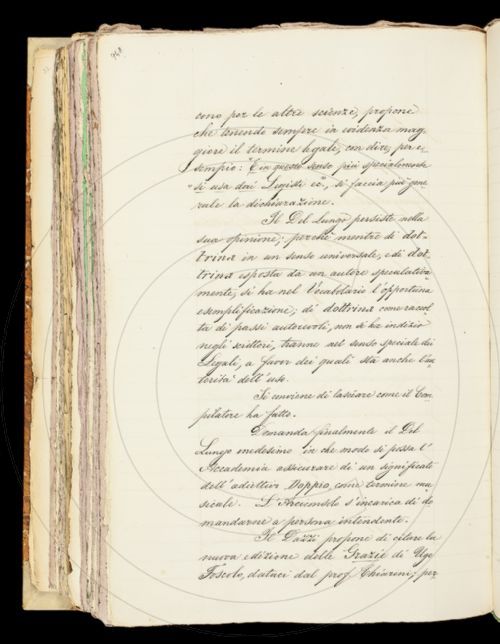 948
cono per le altre scienze, propone
che tenendo sempre in evidenza mag-
giore il termine legale, con dire, per e-
sempio: "E in questo senso più specialmente
"si usa dai Legisti ec", si faccia più gene
rale la dichiarazione.
Il Del Lungo persiste nella
sua opinione; perchè mentre di dot-
trina in un senso universale, e di dot
trina esposta da un autore speculativa
mente, si ha nel Vocabolario l'opportuna
esemplificazione, di dottrina come raccol
ta di passi autorevoli, non si ha indizio
negli scrittori, tranne nel senso speciale dei
Legali, a favor dei quali sta anche l'au
torità dell'uso.
Si conviene di lasciare come il Com
pilatore ha fatto.
Domanda finalmente il Del
Lungo medesimo in che modo si possa l'
Accademia assicurare di un significato
dell'adiettivo Doppio, come termine mu
sicale. L'Arciconsolo s'incarica di do
mandarne a persona intendente.
Il Dazzi propone di citare la
nuova edizione delle Grazie di Ugo
Foscolo, dataci dal prof. Chiarini; per